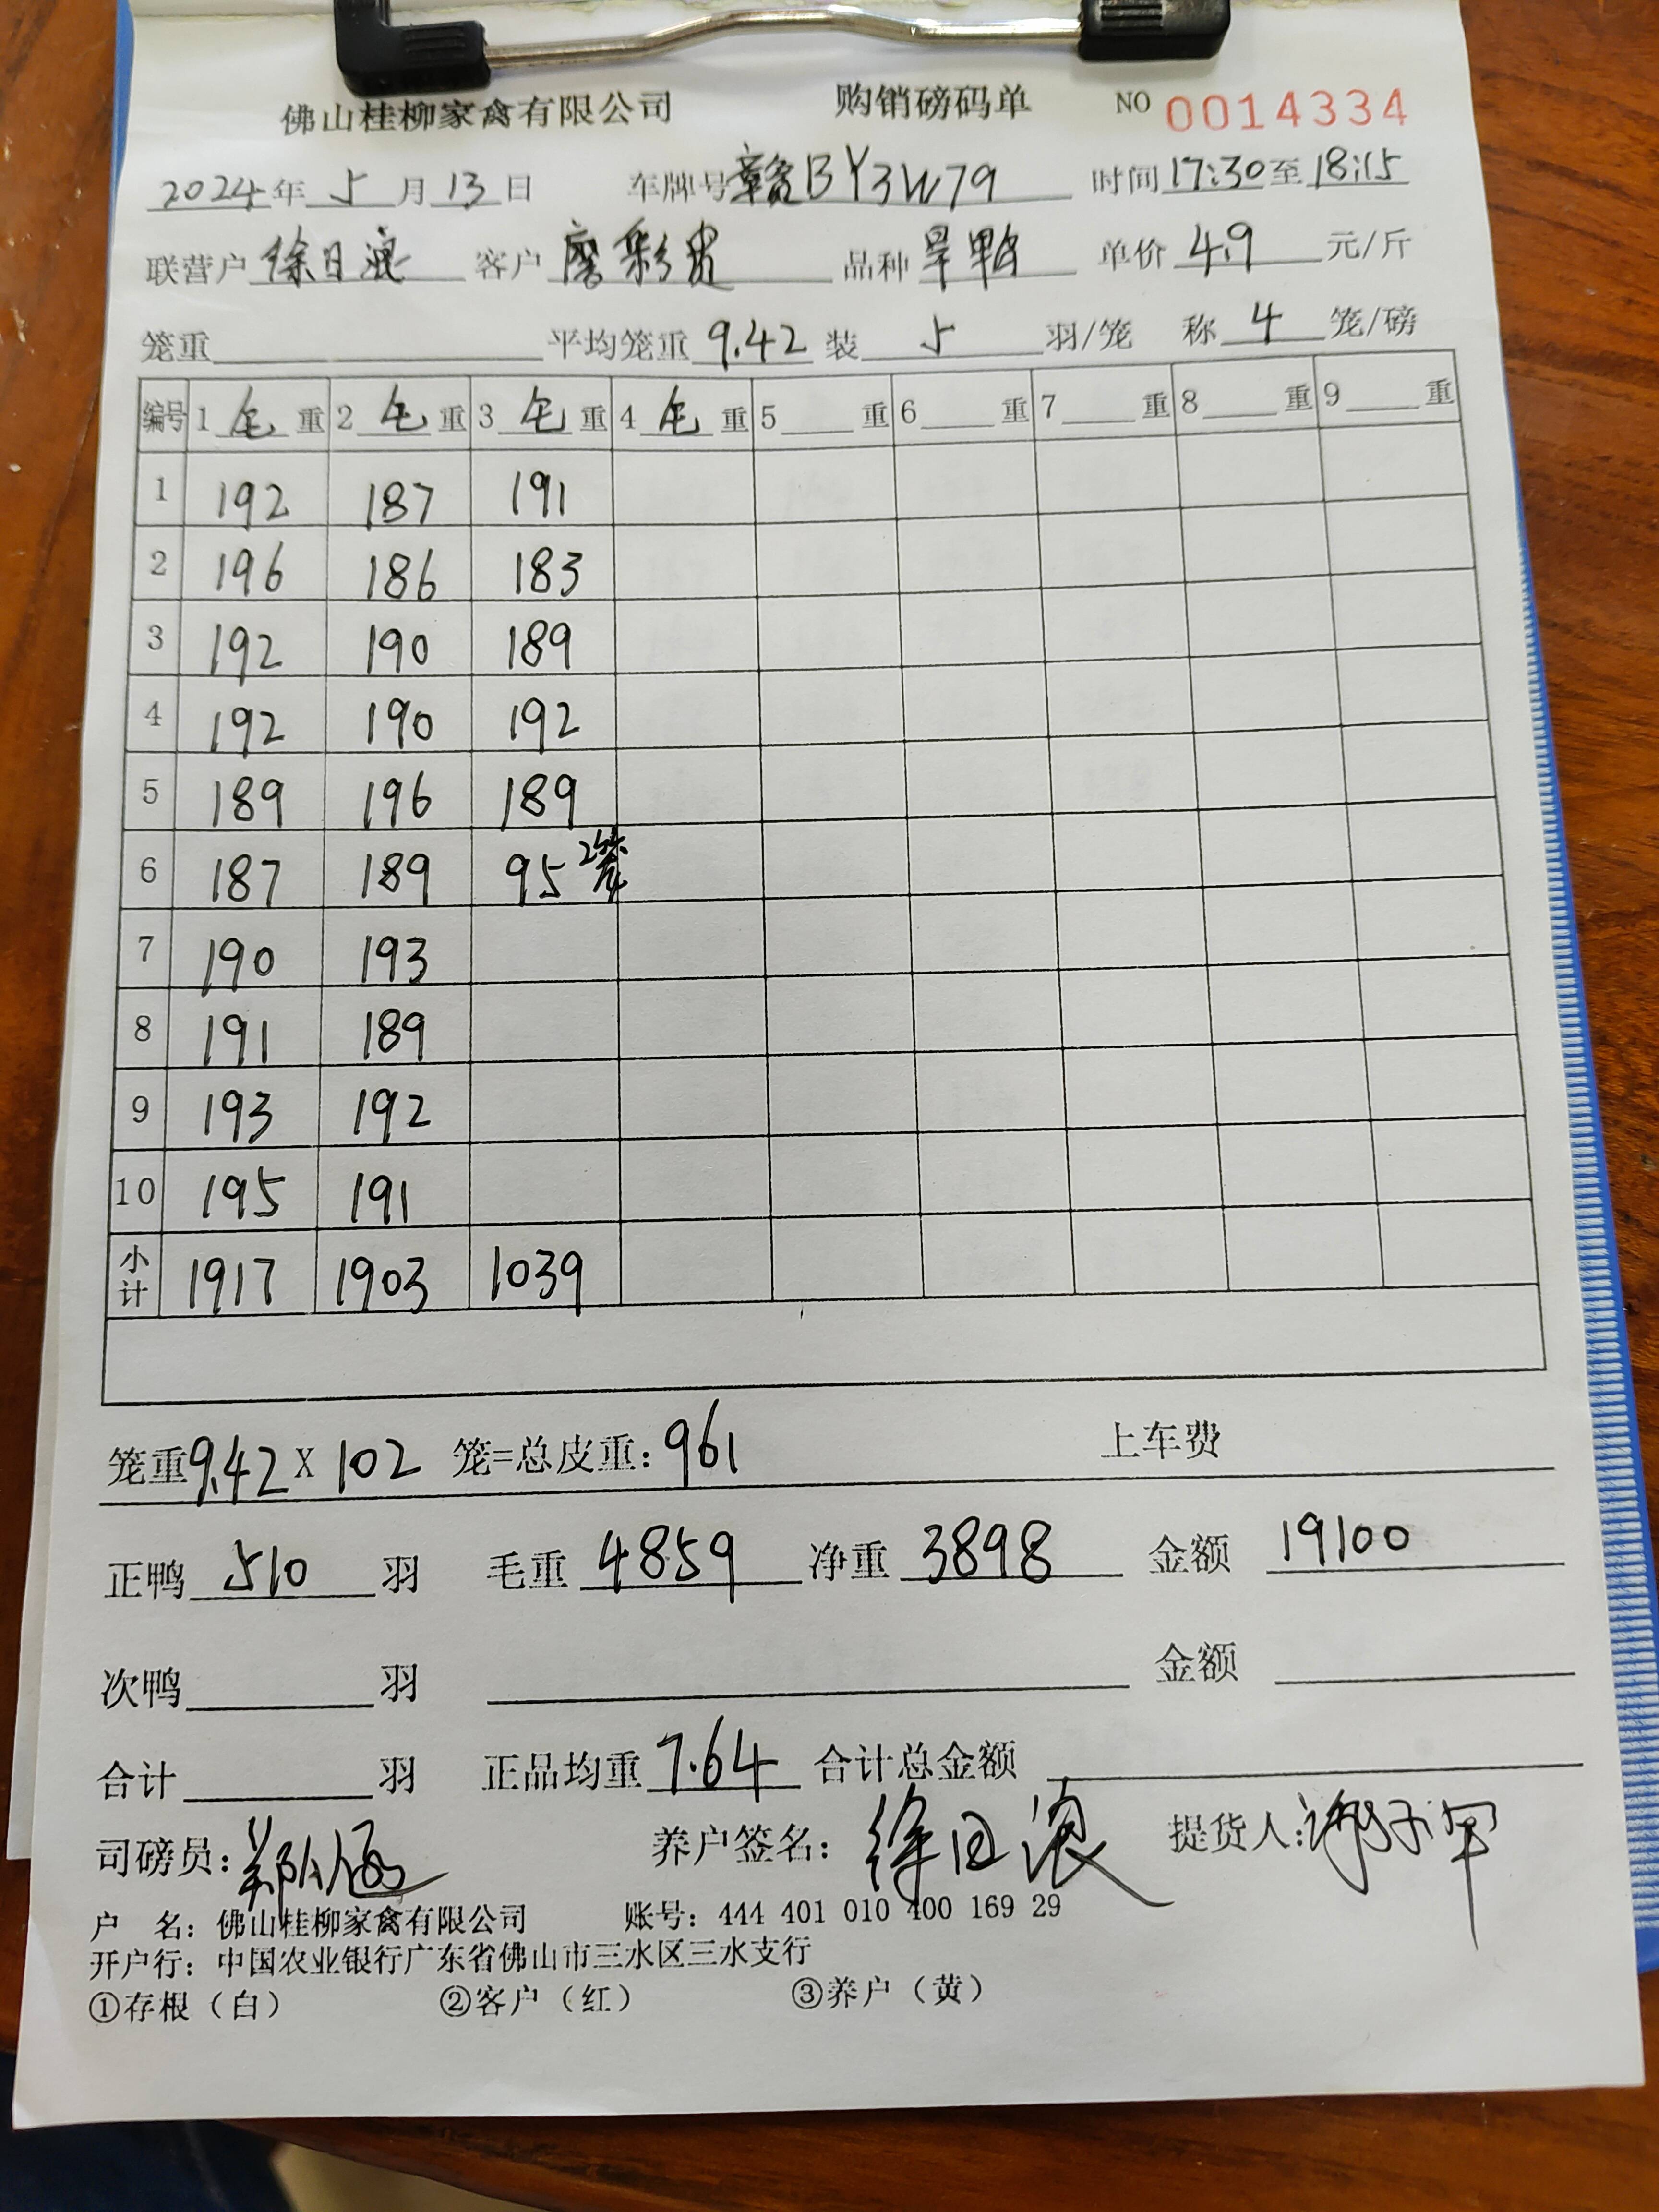 佛山桂柳家禽有限公司 购销磅码单 NO 0014334
2024年 5 月 13 日 车牌号 赣BY3W79 时间 17:30 至 18:15
联营户 徐日浪 客户 廖彩贵 品种 旱鸭 单价 4.9 元/斤
笼重 平均笼重 9.42 装 5 羽/笼 称 4 笼/磅
编号 1 毛 重 2 毛 重 3 毛 重 4 毛 重 5 重 6 重 7 重 8 重 9 重
1 192 187 191
2 196 186 183
3 192 190 189
4 192 190 192
5 189 196 189
6 187 189 95 2笼
7 190 193
8 191 189
9 193 192
10 195 191
小计 1917 1903 1039
笼重 9.42 X 102 笼=总皮重: 961 上车费
正鸭 510 羽 毛重 4859 净重 3898 金额 19100
次鸭 羽 金额
合计 羽 正品均重 7.64 合计总金额
司磅员: 养户签名: 徐日浪 提货人:
户 名: 佛山桂柳家禽有限公司 账号: 444 401 010 400 169 29
开户行: 中国农业银行广东省佛山市三水区三水支行
①存根（白） ②客户（红） ③养户（黄）